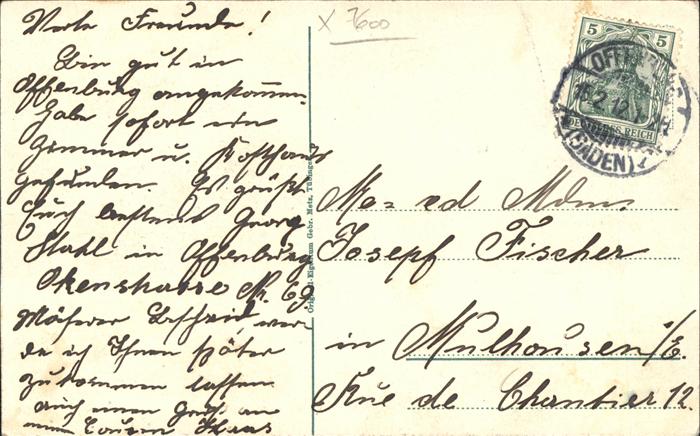 Werte Freunde!
Bin gut in
Offenburg angekommen.
Habe sofort ein
Zimmer u. Kosthaus
gefunden. Es grüßt
Euch bestens Georg
Stahl in Offenburg
Okenstrasse Nr. 69
Näherer Bescheid, wer
de ich Ihnen später
zukommen lassen
auch einen Gruß an
Cousin
X 7600
5 5
DEUTSCHES REICH
OFFENBURG
15.2.12
(BADEN)
Original-Eigentum Gebr. Metz, Tübingen
Mdm.
Josepf Fischer
in Mulhousen i/E.
Rue de Chantier 12.